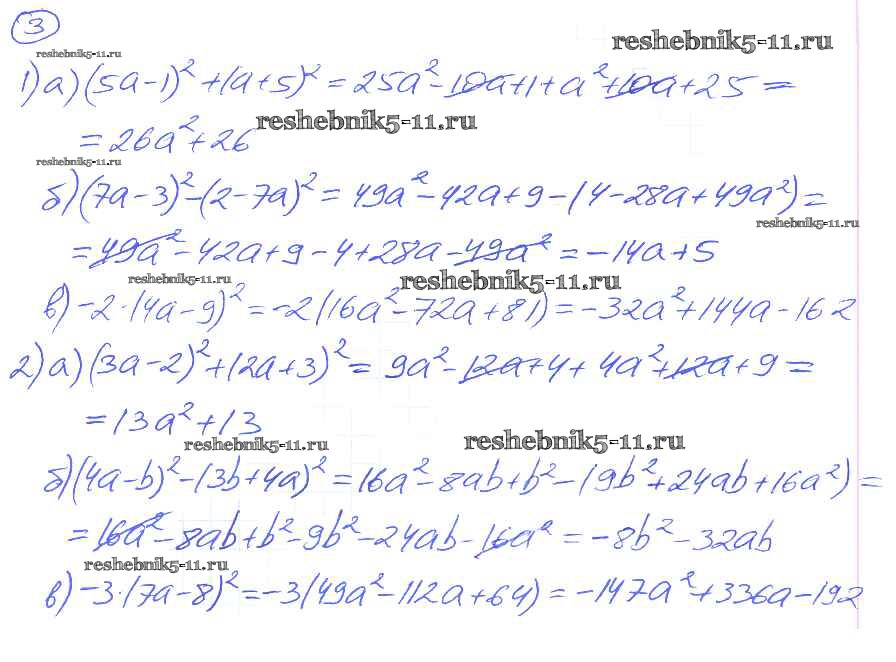 3
reshebnik5-11.ru reshebnik5-11.ru
1) а) (5a-1)² + (a+5)² = 25a² - 10a + 1 + a² + 10a + 25 =
= 26a² + 26 reshebnik5-11.ru
reshebnik5-11.ru
б) (7a-3)² - (2-7a)² = 49a² - 42a + 9 - (4 - 28a + 49a²) =
reshebnik5-11.ru
= 49a² - 42a + 9 - 4 + 28a - 49a² = -14a + 5
reshebnik5-11.ru reshebnik5-11.ru
в) -2·(4a-9)² = -2(16a² - 72a + 81) = -32a² + 144a - 162
2) а) (3a-2)² + (2a+3)² = 9a² - 12a + 4 + 4a² + 12a + 9 =
= 13a² + 13
reshebnik5-11.ru reshebnik5-11.ru
б) (4a-b)² - (3b+4a)² = 16a² - 8ab + b² - (9b² + 24ab + 16a²) =
= 16a² - 8ab + b² - 9b² - 24ab - 16a² = -8b² - 32ab
reshebnik5-11.ru
в) -3·(7a-8)² = -3(49a² - 112a + 64) = -147a² + 336a - 192